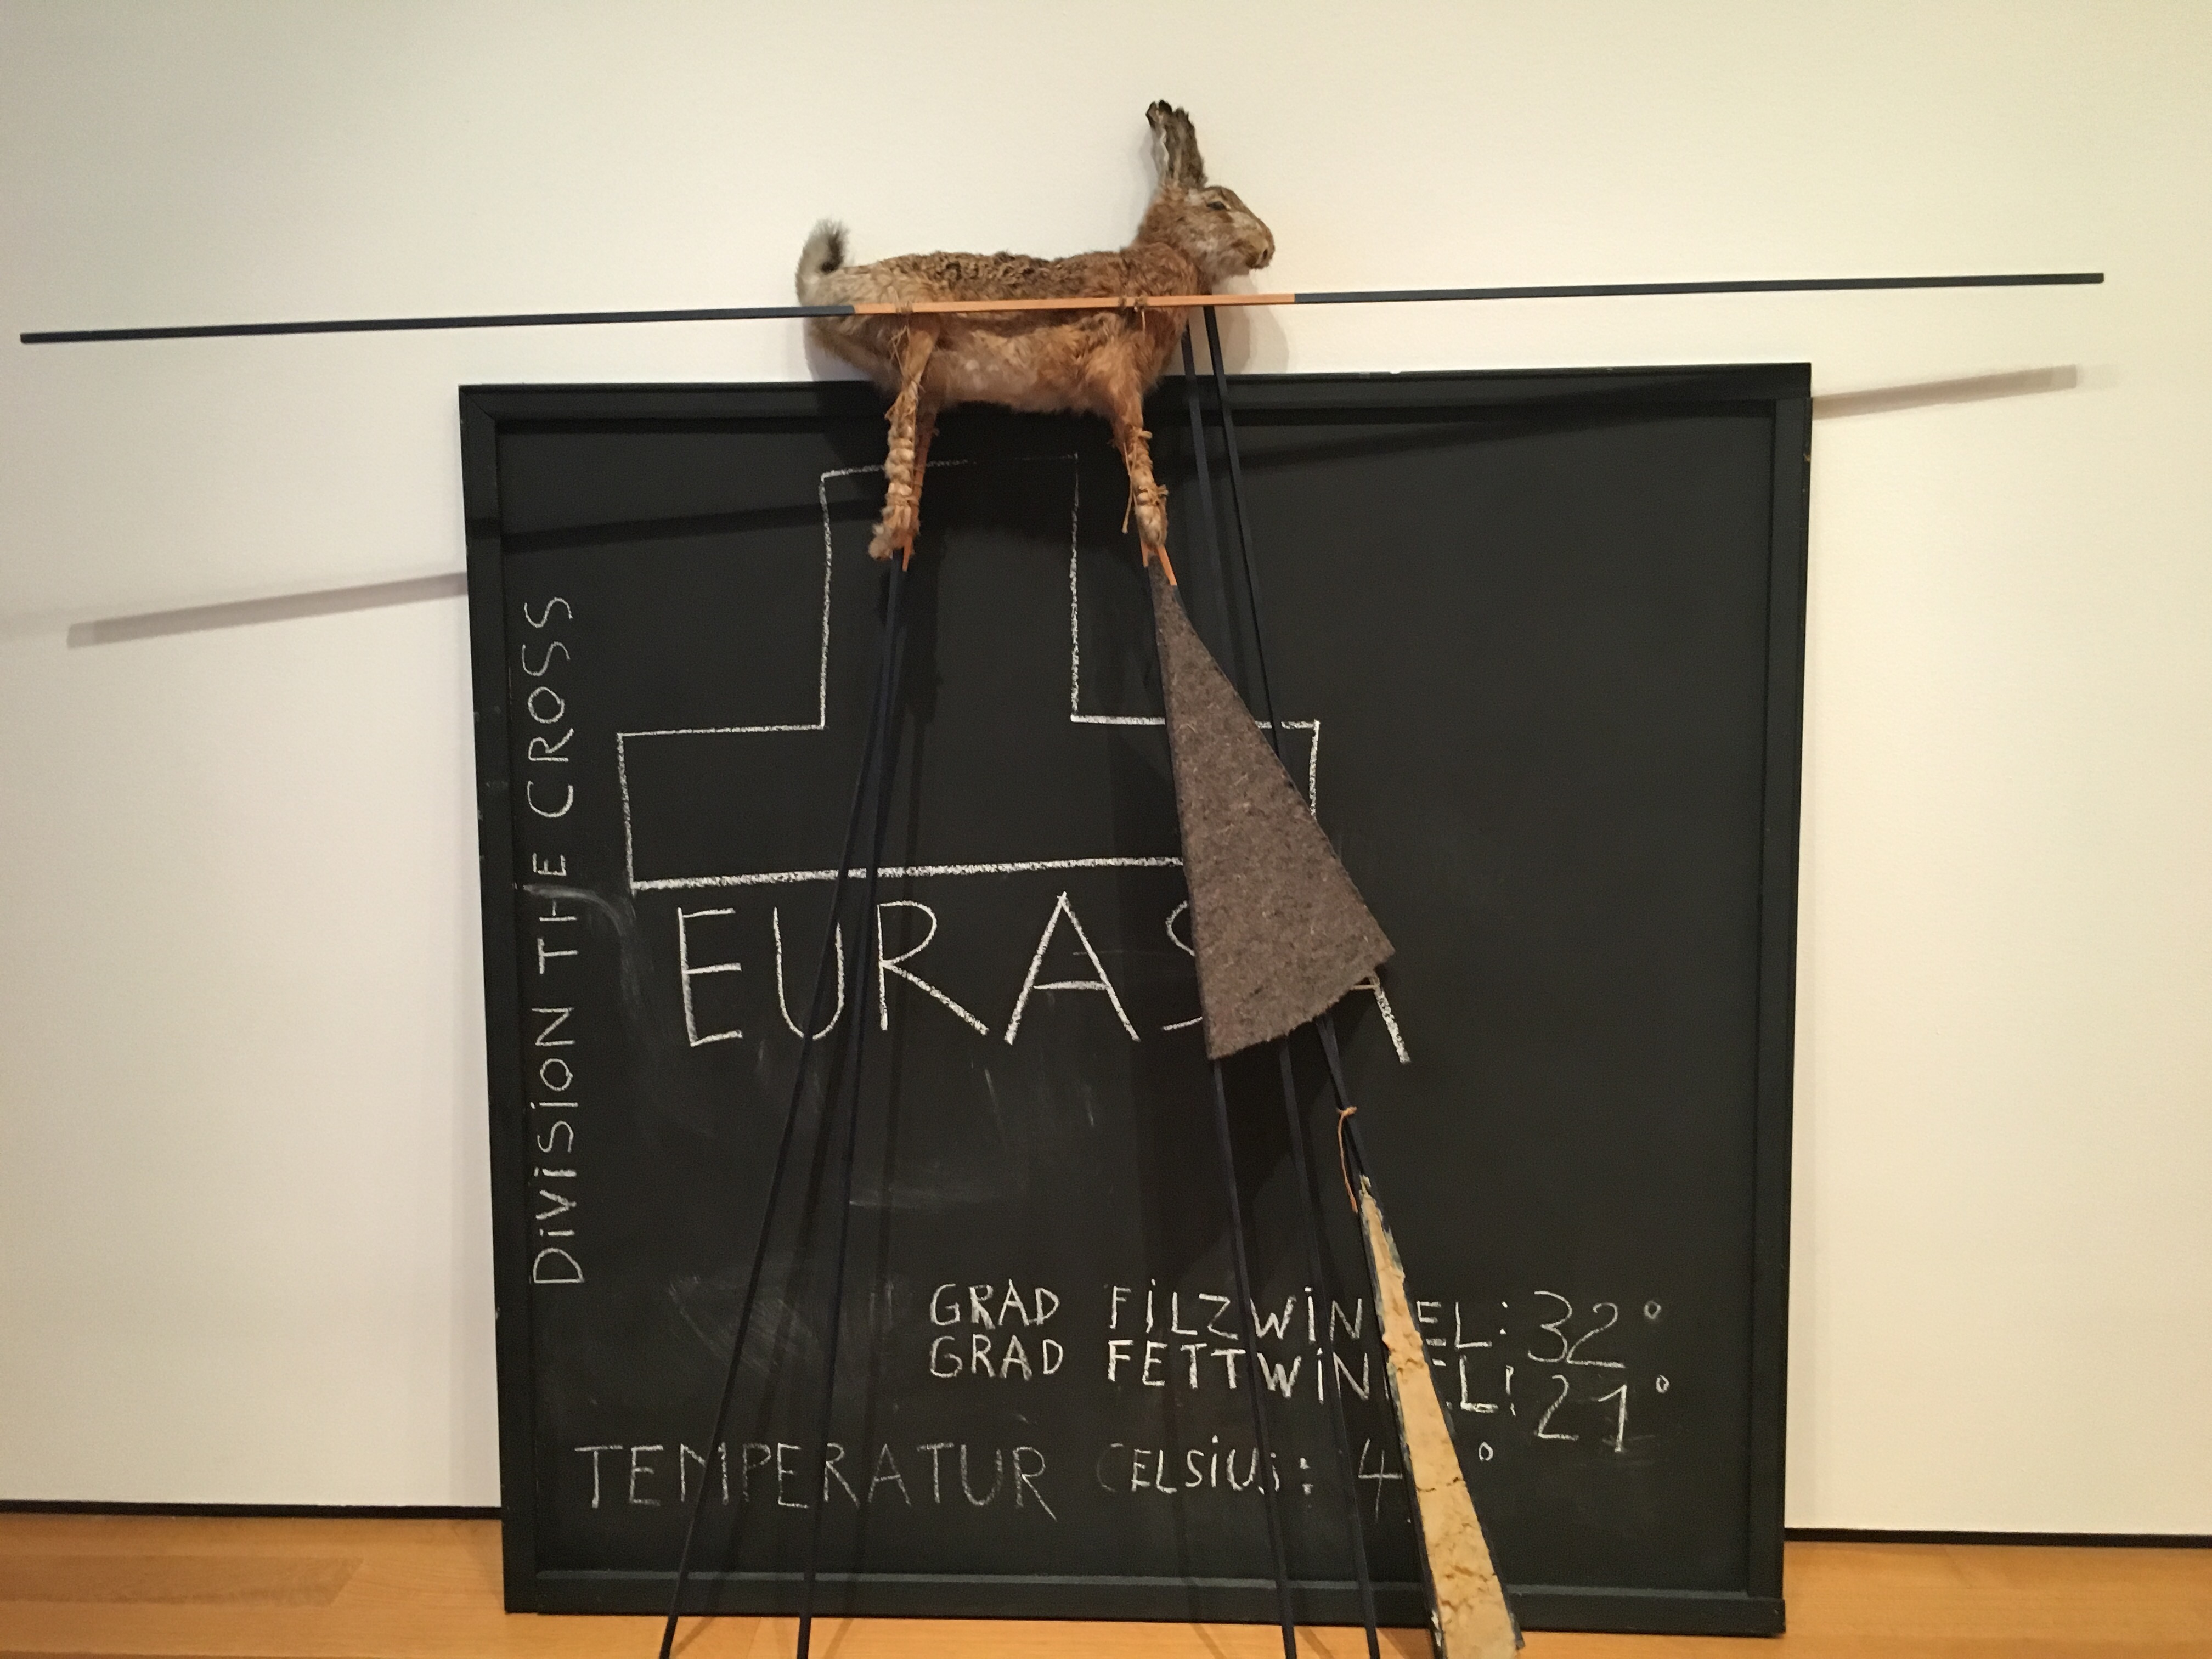 DiViSiON THE CROSS
EURAS A
GRAD FiLZWiNKEL: 32°
GRAD FETTWiNKEL: 21°
TEMPERATUR CELSiUS: 4 °